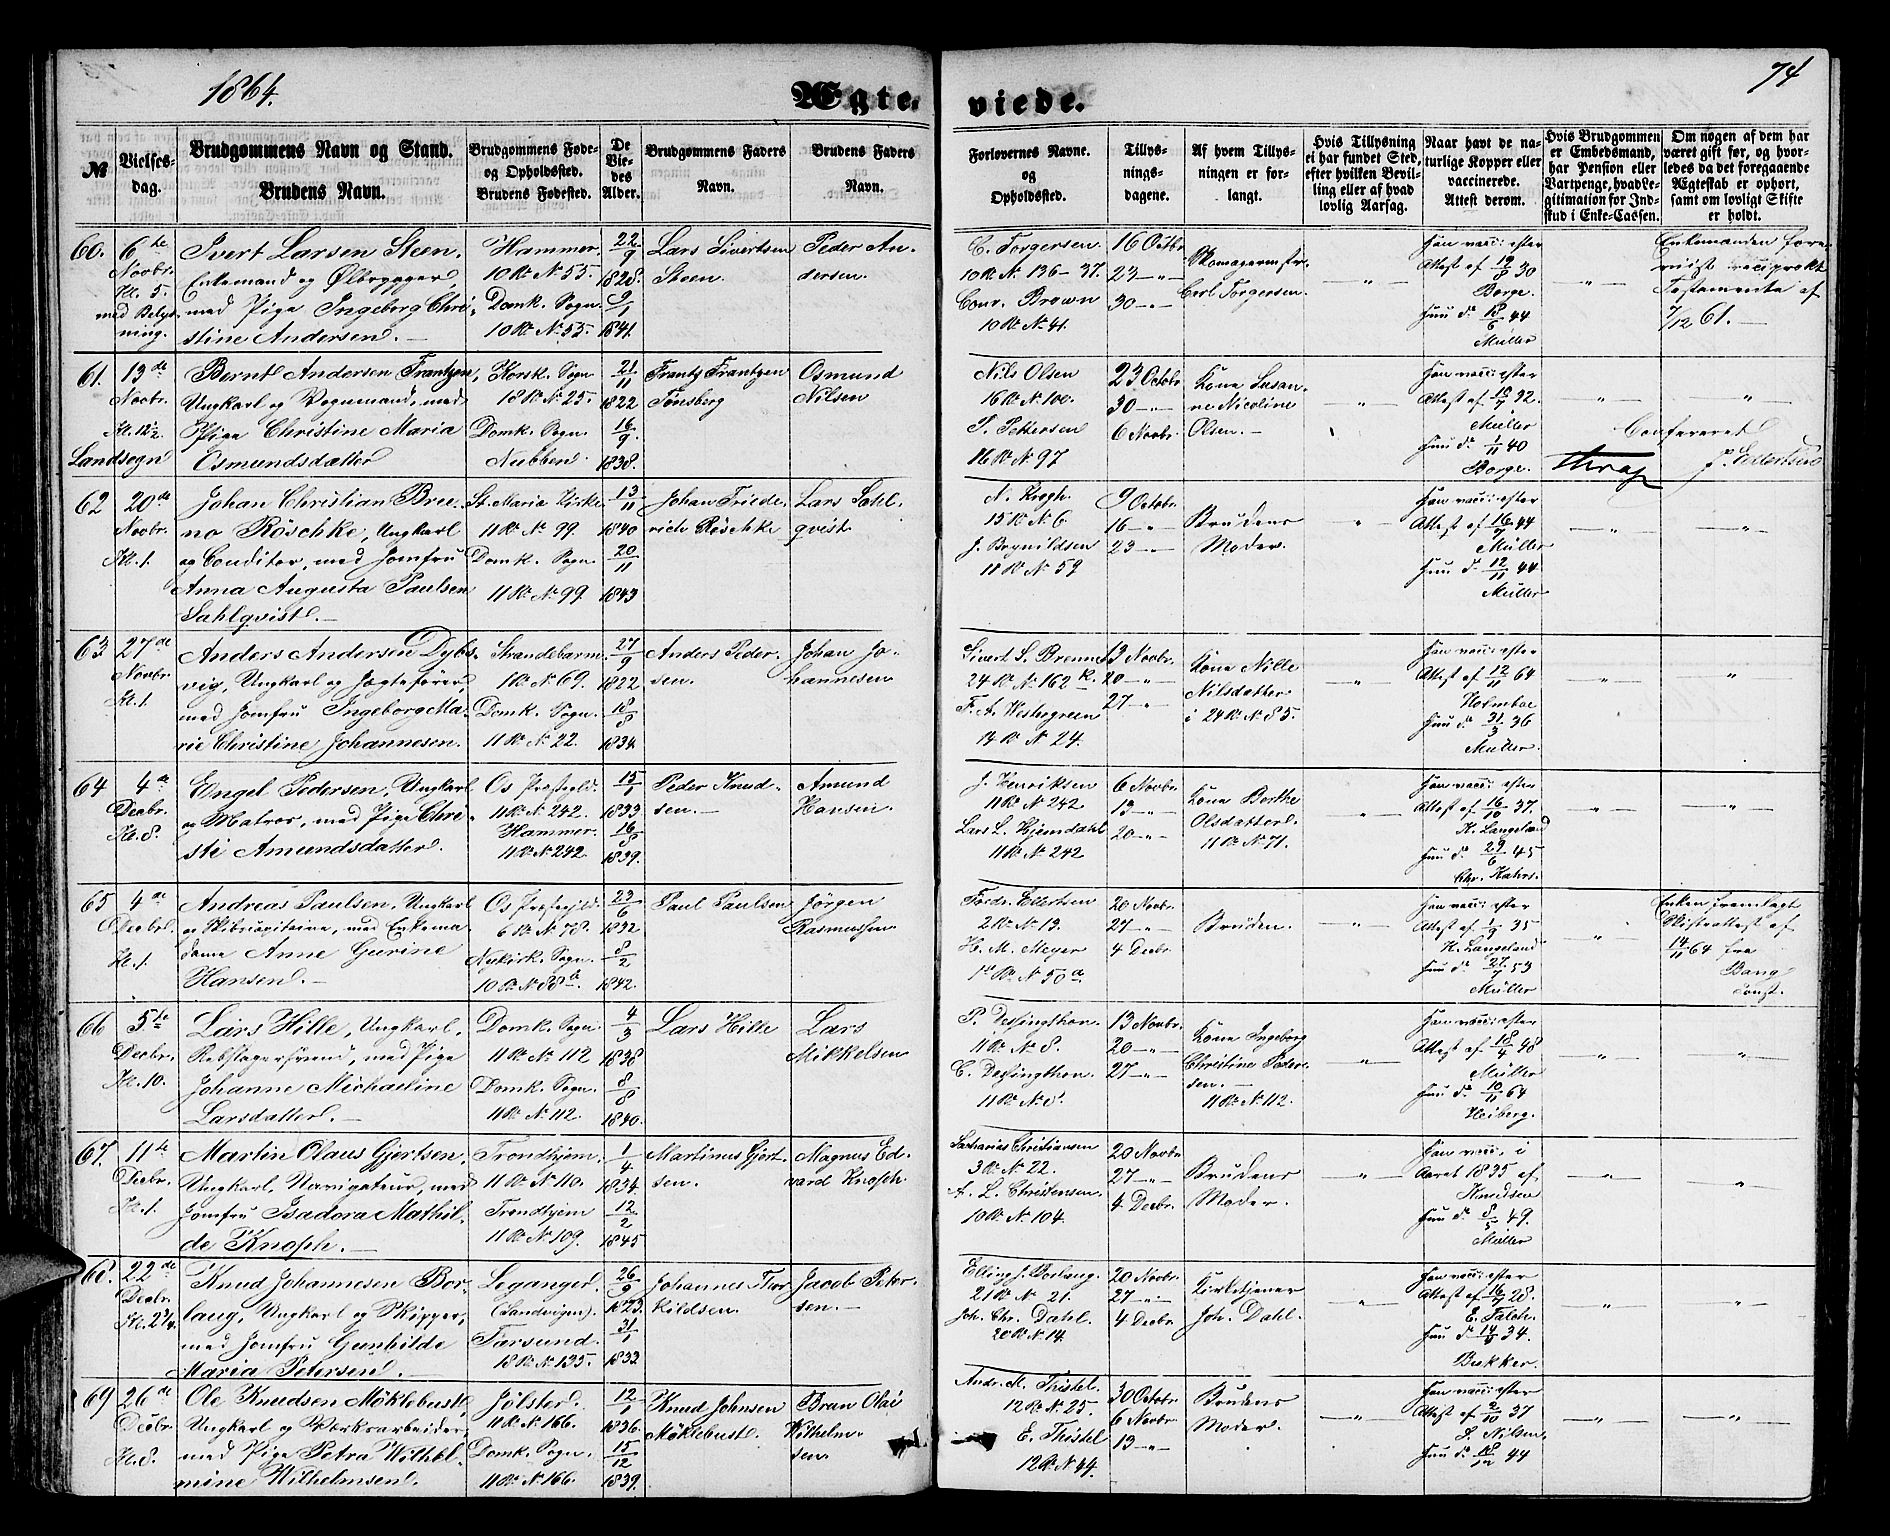 1864.
Ægte-
viede.
74
№
Vielses-
dag.
Brudgommens Navn og Stand.
Brudens Navn.
Brudgommens Føde-
og Opholdssted.
Brudens Fødested.
De
Vie-
des
Alder.
Brudgommens Faders
Navn.
Brudens Faders
Navn.
Forlovernes Navne.
og
Opholdssted.
Tillys-
nings-
dagene.
Af hvem Tillys-
ningen er for-
langt.
Hvis Tillysning
ei har fundet Sted,
efter hvilken Bevil-
ling eller af hvad
lovlig Aarsag.
Naar havt de na-
turlige Kopper eller
vaccinerede.
Attest derom.
Hvis Brudgommen
er Embedsmand,
har Pension eller
Vartpenge, hvad Le-
gitimation for Ind-
skud i Enke-Cassen.
Om nogen af dem har
været gift før, og hvor-
ledes da det foregaaende
Ægteskab er ophørt,
samt om lovligt Skifte
er holdt.
60.
6te
Novbr.
Kl. 5
med Belys-
ning.
Ivert Larsen Steen,
Enkemand og Ølbrygger,
med Pige Ingeborg Chri-
stine Andersen.
Hammer.
10 R. N. 55.
Domk. Sogn.
10 R. N. 55.
22/9
1828.
9/1
1841.
Lars Sivertsen
Steen.
Peder An-
dersen.
C. Torgersen.
10 R. N. 136-37.
Conr. Brown
10 R. N. 41.
16 Octbr.
23 - "
30 - "
Skomagermstr.
Carl Torgersen.
Han vacc: efter
Attest af 19/8 30
Borge.
Hun do 18/6 44
Müller
Enkemanden
Testamente af
7/12 61.
61.
13de
Novbr.
Kl. 12½
Landsogn
Bernt Andersen Frantzen,
Ungkarl og Vognmand, med
Pige Christine Maria
Osmundsdatter
Korsk. Sogn
18 R. N. 25.
Domk. Sogn.
Nubben.
21/11
1822
16/9
1838.
Frantz Frantzen
Tønsberg
Osmund
Nilsen
Nils Olsen
16 R. N. 100.
S. Pettersen
16 R. N. 97
23 Octobr.
30 - "
6 Novbr.
Kone Susan-
ne Nicoline
Olsen.
Han vacc: efter
Müller
Hun do 1/11 40
Borge.
Confereret
62
20de
Novbr.
Kl. 1.
Johan Christian Bru-
no Röschke, Ungkarl
og Conditor, med Jomfru
Anna Augusta Paulsen
Sahlqvist.
St. Maria Kirke
11 R. N. 99.
Domk. Sogn.
11 R. N. 99.
13/11
1840
20/11
1843
Johan Friede-
rich Röschke
Lars Sahl-
qvist
N. Krogh.
15 R. N. 6.
J. Brynildsen
11 R. N. 59
9 Octobr.
16 - "
23 - "
Brudens
Moder.
Han vacc: efter
Attest af 16/7 44
Müller
Hun do 12/11 44
Müller
63
27de
Novbr.
Kl. 1.
Anders Andersen Dybs-
vig, Ungkarl og Jægtefører,
med Jomfru Ingeborg Ma-
rie Christine Johannesen.
Strandebarm
1 R. N. 69.
Domk. Sogn.
11 R. N. 22.
27/9
1822.
18/8
1834.
Anders Peder-
sen.
Johan Jo-
hannesen
Sivert S. Brennes
24 R. N. 162 k.
F. A. Westergreen
14 R. N. 24.
13 Novbr.
20 - "
27 - "
Kone Nille
Nilsdatter
i 24 R. N. 85.
Han vacc: efter
Attest af 12/11 64
Holmboe
Hun do 31/3 36
Müller.
64
4de
Decbr.
Kl. 8.
Engel Pedersen, Ungkarl
og Matros, med Pige Chri-
sti Amundsdatter.
Os Præstegjeld.
11 R. N. 242.
Hammer.
11 R. N. 242.
15/1
1833
16/8
1839.
Peder Knud-
sen.
Amund
Hansen.
J. Henriksen
11 R. N. 242
Lars L. Hjemdahl
11 R. N. 242
6 Novbr.
13 - "
20 - "
Kone Berthe
Olsdatter.
11 R. N. 71.
Han vacc: efter
Attest af 16/10 37.
K. Langeland
Hun do 29/6 45
Chr. Kahrs.
65
4de
Decbr.
Kl. 1.
Andreas Paulsen, Ungkarl
og Skibscapitaine, med Enkema-
dame Anne Gurine
Hansen.
Os Præstegjeld.
6 R. N. 78.
Nykirk. Sogn.
10 R. N. 88 b.
23/6
1832
8/2
1842.
Paul Paulsen
Jørgen
Rasmussen
Fredr. Ellertsen
2 R. N. 13.
H. M. Meyer
1 R. N. 50 a
20 Novbr.
27 - "
4 Decbr.
Bruden.
Han vacc: efter
Attest af 1/9 35
K. Langeland
Hun do 27/7 53
Müller
Enken fremlagt
Skifteattest af
14/11 64 fra
Bang
Const.
66
5te
Decbr.
Kl. 10.
Lars Hille, Ungkarl,
Rebslagersvend, med Pige
Johanne Michaeline
Larsdatter.
Domk. Sogn
11 R. N. 112
Domk. Sogn.
11 R. N. 112.
4/3
1838
8/8
1840.
Lars Hille
Lars
Mikkelsen
P. Dessingthon.
11 R. N. 8.
C. Dessingthon.
11 R. N. 8.
13 Novbr.
20 - "
27 - "
Kone Ingeborg
Christine Peder-
sen.
11 R. N. 112.
Han vacc: efter
Attest af 18/4 48
Müller
Hun do 10/11 64
Heiberg.
67.
11te
Decbr.
Kl. 1.
Martin Olaus Gjertsen,
Ungkarl, Navigateur, med
Jomfru Isadora Mathil-
de Knoph.
Trondhjem.
11 R. N. 110.
Trondhjem
11 R. N. 109.
1/4
1834.
12/2
1845
Martinus Gjert-
sen.
Magnus Ed-
vard Knoph.
Zacharias Christiansen
3 R. N. 22.
A. L. Christensen.
10 R. N. 104.
20 Novbr.
27 - "
4 Decbr.
Brudens
Moder.
Han vacc. i
Aaret 1835 af
Knudsen
Hun do 8/5 49.
Müller
68.
22de
Decbr.
Kl. 2¼
Knud Johannesen Bor-
laug, Ungkarl og Skipper,
med Jomfru Gunhilde
Maria Petersen.
Leganger.
(Sandvigen).
Farsund.
18 R. N. 135.
26/9
1823.
31/1
1833
Johannes Thor-
kildsen.
Jacob Peter-
sen.
Elling J. Borlaug.
21 R. N. 21.
Joh. Chr. Dahl.
20 R. N. 14.
20 Novbr.
27 - "
4 Decbr.
Kirketjener
Joh. Dahl.
Han vacc: efter
Attest af 16/9 28.
E. Falch.
Hun do 14/9 34.
Bukker.
69
26de
Decbr.
Kl. 8.
Ole Knudsen Møklebust,
Ungkarl og Værksarbeider,
med Pige Petra Wilhel-
mine Wilhelmsen.
Jølster.
11 R. N. 166.
Domk. Sogn.
11 R. N. 166.
12/1
1836.
15/12
1839.
Knud Johnsen
Møklebust.
Bran Olai
Wilhelm-
sen.
Andr. M. Thistel.
12 R. N. 25.
E. Thistel
12 R. N. 44.
30 Octobr.
6 Novbr.
13 - "
Brudens
Moder.
Han vacc: efter
Attest af 2/10 37
S. Nilsen.
Hun do 18/12 44